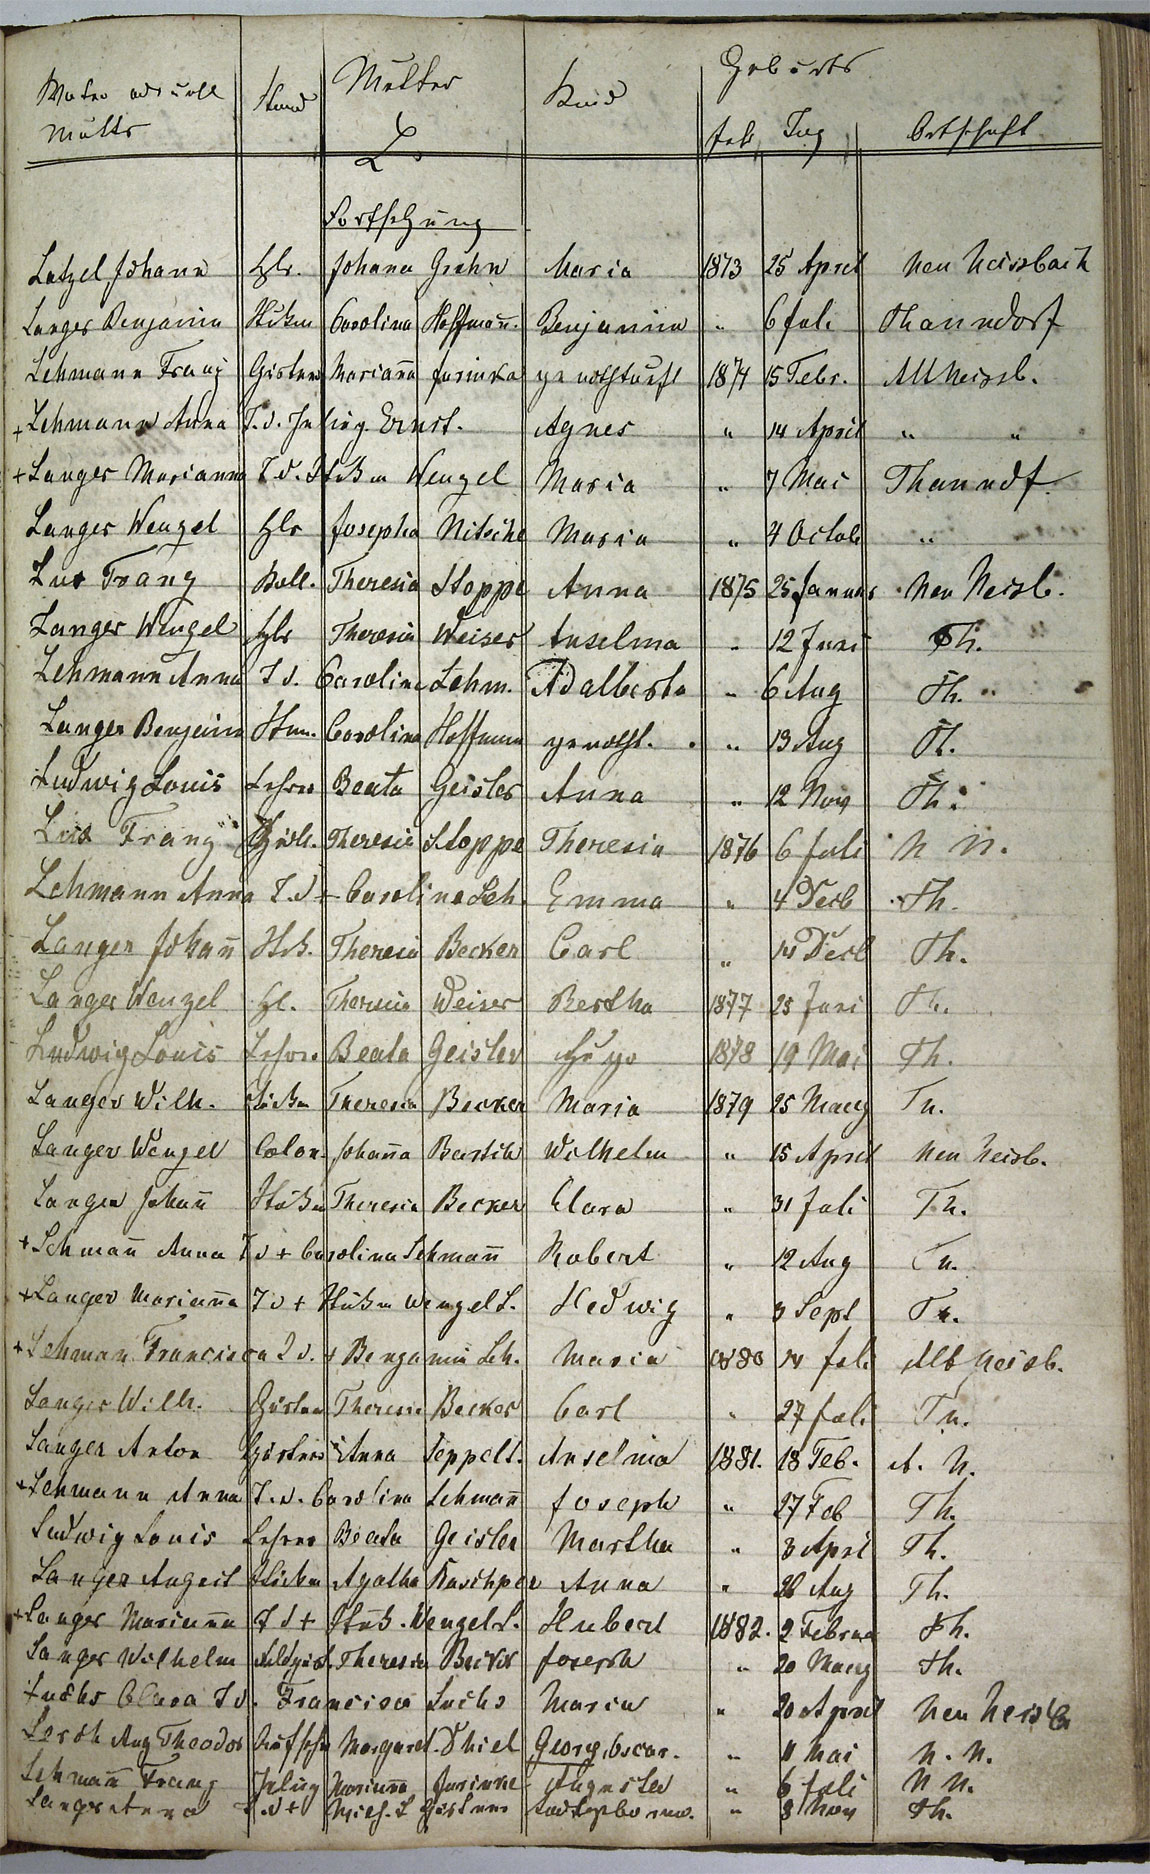 Vater oder voll Stand Mutter Kind Geburts
Mutter L. Jahr Tag Ortschaft
Fortsetzung
Latzel Johann Hlr. Johana Grehn Maria 1873 25 April Neu Neissbach
Langer Benjamin Stükm Carolina Hoffmañ. Benjamin " 6 Juli Thanndorf
Lehmann Franz Gärtner Mariañа Jurinka y nothtauft 1874 15 Febr. Alt Neissb.
+ Lehmann Anna T. d. Inlieg. Ernst. Agnes " 14 April " "
+ Langer Marianna T. d. Stükm Wenzel Maria " 7 Mai Thanndf.
Langer Wenzel Hlr Josepha Nitsche Maria " 4 Octob "
Lux Franz Ball. Theresia Stoppe Anna 1875 25 Januar Neu Neissb.
Langer Wenzel Hlr Theresia Weiser Anselma " 12 Juni Th.
Lehmann Anna T d. Caroline Lehm. Adalberta " 6 Aug Th.
Langer Benjamin Stkm. Carolina Hoffmann y notht. " 13 Aug Th.
Ludwig Louis Lehrer Beata Geisler Anna " 12 Nov Th.
Lux Franz Theresia Stoppe Theresia 1876 6 Juli N N.
Lehmann Anna T. d + Carolina Leh. Emma " 4 Decb Th.
Langer Johañ Stk. Theresia Becker Carl " 14 Decb Th.
Langer Wenzel Hl. Theresia Weiser Bertha 1877 25 Juni Th.
Ludwig Louis Lehrer Beata Geisler Hugo 1878 19 Mai Th.
Langer Wilh. Stükm Theresia Becker Maria 1879 25 Maerz Th.
Langer Wenzel Colon. Johañа Bartsch Wilhelm " 15 April Neu Neissb.
Langer Johañ Stükm Theresia Becker Clara " 31 Juli Th.
+ Lehmañ Anna T d + Carolina Lehmañ Robert " 12 Aug Th.
+ Langer Mariañа T d + Stükm Wenzel L. Hedwig " 3 Sept Th.
+ Lehman Francisca T d. + Benjamin Leh. Maria 1880 14 Juli Alt Neissb.
Langer Wilh. Gärtner Theresia Becker Carl " 27 Juli Th.
Langer Anton Gärtner Anna Seppelt. Anselma 1881. 18 Feb. A. N.
+ Lehmann Anna T. d. Carolina Lehmañ Joseph " 27 Feb Th.
Ludwig Louis Lehrer Beata Geisler Martha " 3 April Th.
Langer August Stückm Agatha Raschper Anna " 28 Aug Th.
+ Langer Mariañа T d + Stük. Wenzel L. Hubert 1882. 2 Februa Th.
Langer Wilhelm Theresia Becker Joseph " 20 Maerz Th.
Fuchs Clara T d. Francisca Fuchs Maria " 20 April Neu Neissb
Lerch Aug Theodor Margaret. Thiel Georg Oscar. " 11 Mai N. N.
Lehmañ Franz Inlieg Marianna Jurinke Augusta " 6 Juli N N.
Langer Anna T. d + L Gärtner todtgeboren. " 8 Nov Th.